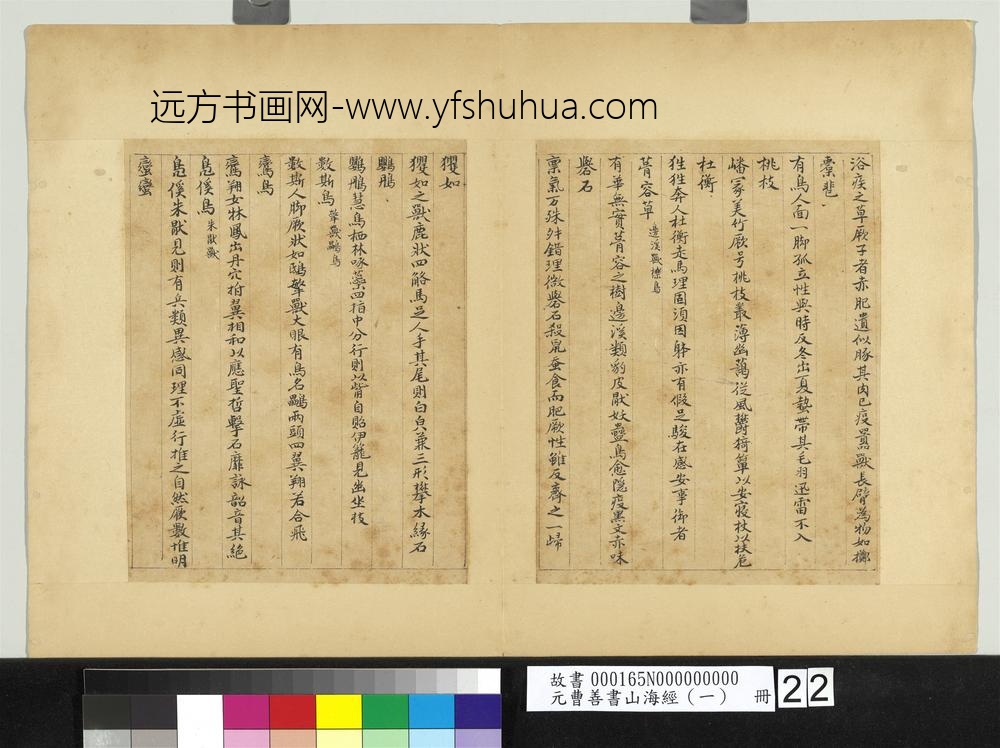 远方书画网-www.yfshuhua.com
浴疾之草厥子者赤肥遺似豚其肉已疫嚻獸長臂為物如擲
橐𩇯
有鳥人面一脚孤立性與時反冬出夏蟄帶其毛羽迅雷不入
桃枝
嶓冢美竹厥号桃枝叢薄幽藹従風欝猗簞以安寢杖以扶危
杜衡
狌狌奔人杜衡走馬理固須因體亦有假足駿在感安事御者
菁容草 邊溪獸櫟鳥
有華無實菁容之樹邊溪類狗皮厭妖蠱鳥愈隱疫黑文赤味
礜石
稟氣万殊舛錯理微礜石殺鼠蚕食而肥厥性雖反齊之一歸
玃如
玃如之獸鹿狀四觡馬足人手其尾則白皃兼三形攀木緣石
鸚鵡
鸚鵡慧鳥栖林啄蘂四指中分行則以觜自貽伊籠見幽坐枝
數斯鳥 𤛎獸鸓鳥
數斯人脚厥狀如鴟𤛎獸大眼有鳥名鸓兩頭四翼翔若合飛
鸞鳥
鸞翔女牀鳳出丹穴拊翼相和以應聖哲擊石靡詠韶音其絶
鳧徯鳥 朱猒獸
鳧徯朱猒見則有兵類異感同理不虛行推之自然厥數惟明
蠻蠻
故書 000165N000000000
元曹善書山海經(一) 冊 22